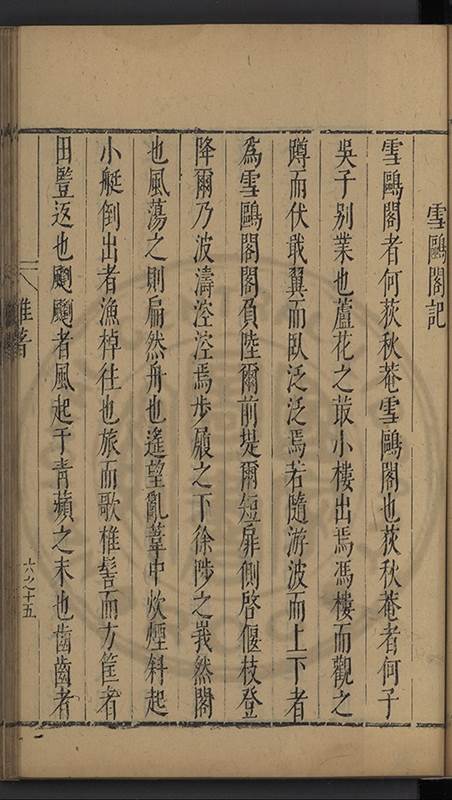 雪鷗閣記
雪鷗閣者何荻秋菴雪鷗閣也荻秋菴者何子
吳子别業也蘆花之叢小樓出焉馮樓而觀之
蹲而伏戢翼而臥泛泛焉若隨游波而上下者
爲雪鷗閣閣負陸爾前堤爾短扉側啓偃枝登
降爾乃波濤涳涳焉步屧之下徐陟之峩然閣
也風蕩之則扁然舟也遙望亂葦中炊煙斜起
小艇倒出者漁棹往也旅而歌椎髻而方筐者
田饁返也颼颼者風起于青蘋之末也齒齒者
雜著
六之十五